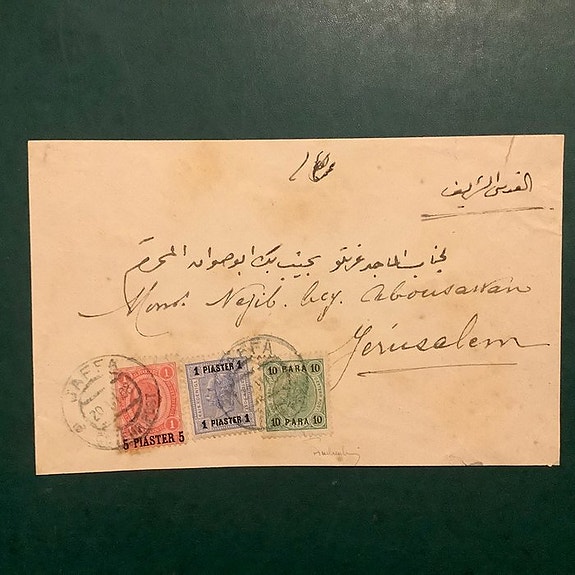 القدس الشريف
لجناب الماجد عزتلو نجيب بك ابو صوان المحترم
Monsr. Nejib. bey Abousawan
Jérusalem
JAFFA
JAFFA
1 1
5 PIASTER 5
1 PIASTER 1
1 PIASTER 1
10 PARA 10
10 PARA 10